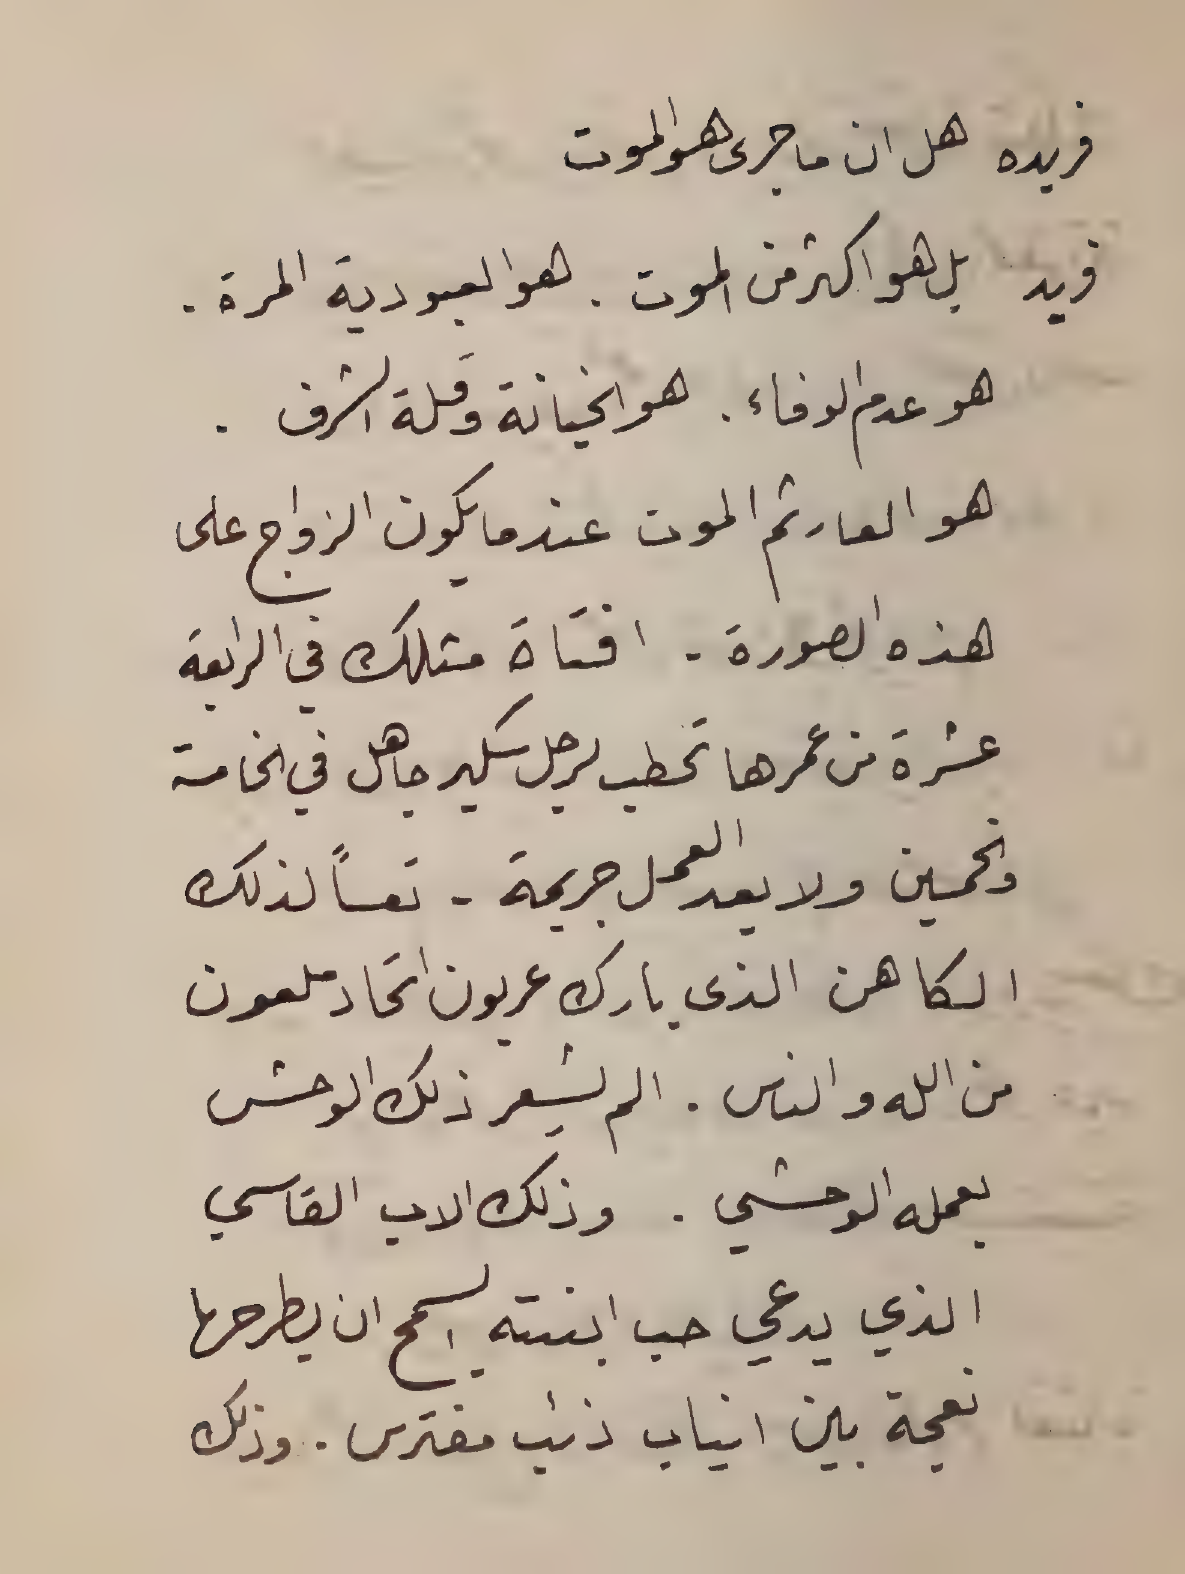 فريده هل ان ما جرى هو الموت
فريد بل هو اكثر من الموت . هو العبودية المرة .
هو عدم الوفاء . هو الخيانة وقلة الشرف .
هو العار ثم الموت عندما يكون الزواج على
هذه الصورة - افتاة مثلك في الرابعة
عشرة من عمرها تخطب لرجل سكير جاهل في الخامسة
والخمسين ولا يعد العمل جريمة - تعساً لذلك
الكاهن الذى بارك عربون اتحاد ملعون
من الله والناس . الم يشعر ذلك الوحش
بعمله الوحشي . وذلك الاب القاسي
الذي يدعي حب ابنته ايسمح ان يطرحها
نعجة بين انياب ذئب مفترس . وذلك